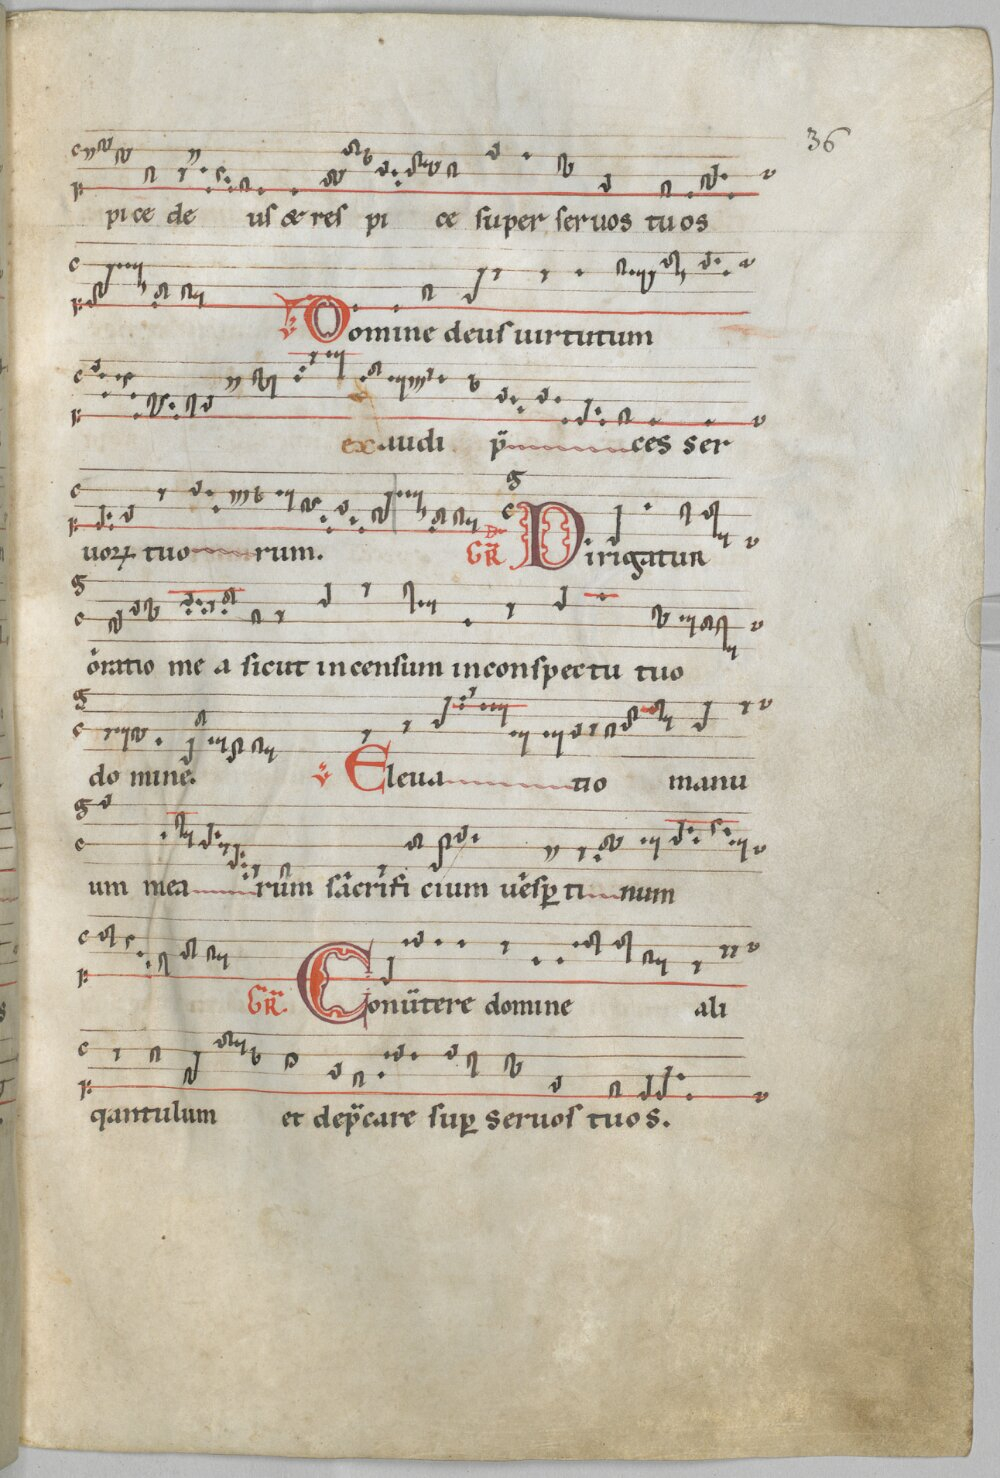 36
pice de us & res pi ce super seruos tuos
Domine deus uirtutum
exaudi p̄ces ser
uoꝝ tuo rum. GR̄ Dirigatur
oratio me a sicut incensum inconspectu tuo
do mine. Eleua tio manu
um mea rum sacrifi cium uesꝑ ti num
GR̄ Conu̅tere domine ali
qantulum et dep̄care suꝑ seruos tuos.